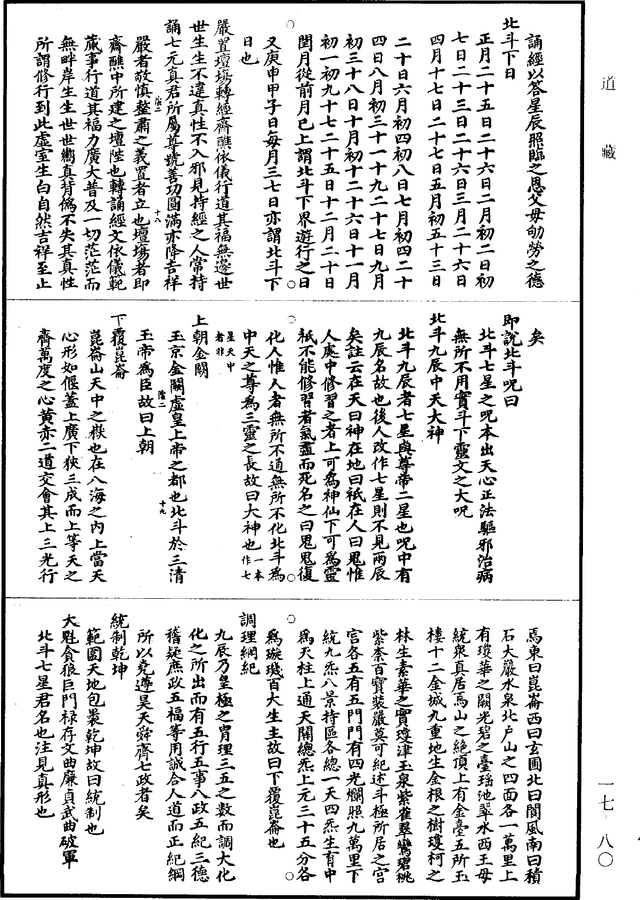 道藏
誦經以答星辰照臨之恩父母劬勞之德
北斗下日
正月二十五日二十六日二月初二日初
七日二十三日二十六日三月二十六日
四月十七日二十七日五月初五十三日
二十日六月初四初八日七月初四二十
四日八月初三十一十九二十七日九月
初三十八日十月初十二十六日十一月
初一初九十七二十五日十二月二十日
閏月從前月已上謂北斗下界遊行之日
又庚申甲子日每月三七日亦謂北斗下
日也
嚴置壇場轉經齋醮依儀行道其福無邊世
世生生不違真性不入邪見持經之人常持
誦七元真君所屬尊號善功圓滿亦降吉祥
嚴者敬慎整肅之義置者立也壇場者即
齋醮中所建之壇陛也轉誦經文依儀範
蕆事行道其福力廣大普及一切茫茫而
無畔岸生生世世嚮真背偽不失其真性
所謂修行到此虛室生白自然吉祥至止
陰二
十八
矣
即說北斗呪曰
北斗七星之呪本出天心正法驅邪治病
無所不用實斗下靈文之大呪
北斗九辰中天大神
北斗九辰者七星與尊帝二星也呪中有
九辰名故也後人改作七星則不見兩辰
矣註云在天曰神在地曰祇在人曰鬼惟
人處中修習之者上可為神仙下可為靈
祇不能修習者氣盡而死名之曰鬼鬼復
化人惟人者無所不通無所不化北斗為
中天之尊為三靈之長故曰大神也一本作七
星天中者非
上朝金闕
玉京金闕虛皇上帝之都也北斗於三清
玉帝為臣故曰上朝
陰二
十九
下覆崑崙
崑崙山天中之嶽也在八海之內上當天
心形如偃蓋上廣下狹三成而上等天之
齊萬度之心黃赤二道交會其上三光行
焉東曰崑崙西曰玄圃北曰閬風南曰積
石大嚴水泉北戶山之四面各一萬里上
有瓊華之闕光碧之臺瑶池翠水西王母
統衆真居焉山之絕頂上有金臺五所玉
樓十二金城九重地生金根之樹瓊柯之
林生素華之實瓊津玉泉紫雀翠鸞碧桃
紫柰百寶裝嚴莫可紀述斗極所居之宮
宮各五有五門門有四光爛照九萬里下
統九炁八景持區各總一天四炁生育中
為天柱上通天關總炁上元三十五分各
為璇璣百大生主故曰下覆崑崙也
調理綱紀
九辰乃皇極之冑理三五之數而調大化
化之所出而有五行五事八政五紀三德
稽疑庶政五福等用誠合人道而正紀綱
所以堯遵昊天舜齊七政者矣
統制乾坤
範圍天地包褁乾坤故曰統制也
大魁貪狼巨門禄存文曲廉貞武曲破軍
北斗七星君名也注見真形也
一七·八〇